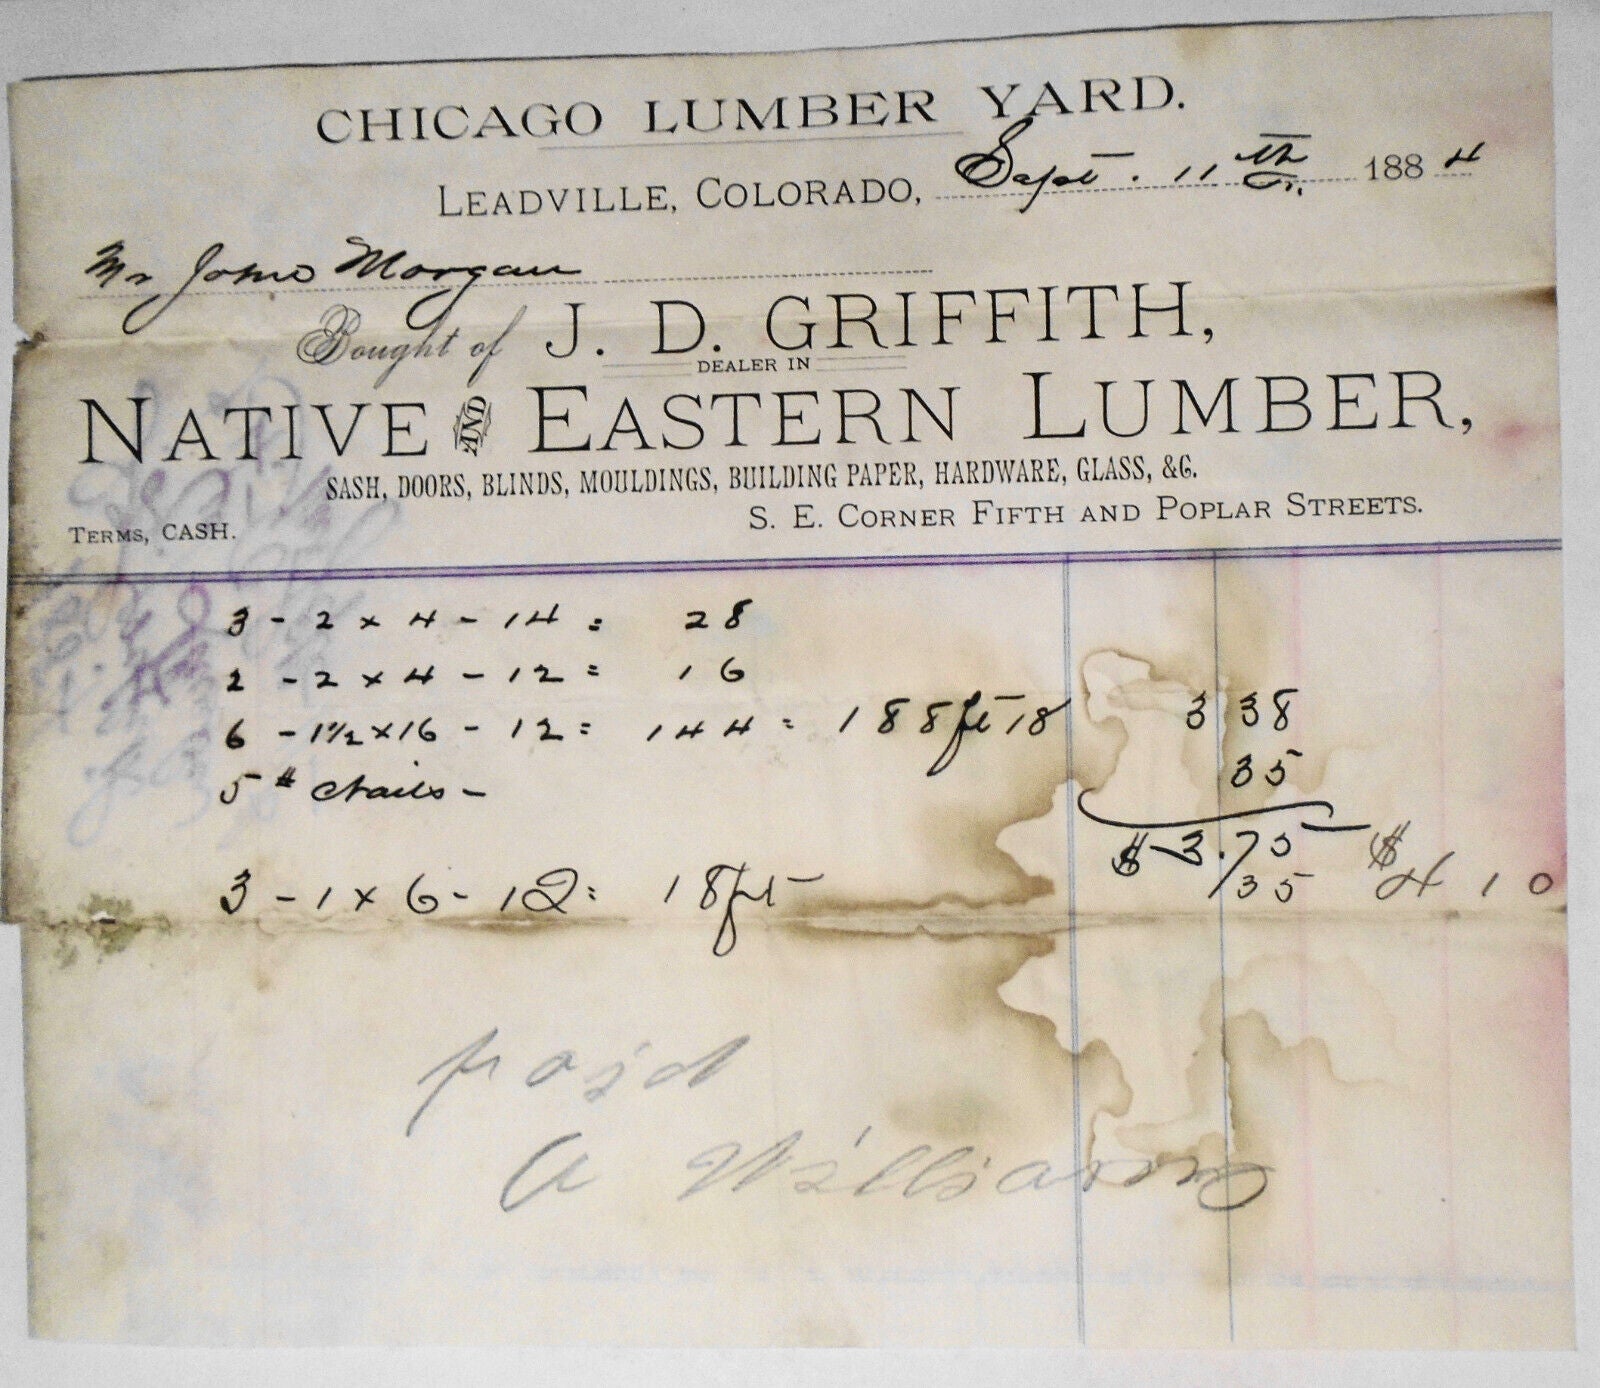 CHICAGO LUMBER YARD.
LEADVILLE, COLORADO, Sept. 11th 1884
Mr John Morgan
Bought of J. D. GRIFFITH,
DEALER IN
NATIVE AND EASTERN LUMBER,
SASH, DOORS, BLINDS, MOULDINGS, BUILDING PAPER, HARDWARE, GLASS, &C.
TERMS, CASH. S. E. CORNER FIFTH AND POPLAR STREETS.
3 - 2 x 4 - 14 = 28
2 - 2 x 4 - 12 = 16
6 - 1½ x 16 - 12 = 144 = 188 ft 18 3 38
5 # Nails - 35
$ 3.75
3 - 1 x 6 - 12 = 18 ft 35 $ 4 10
paid
A Williams